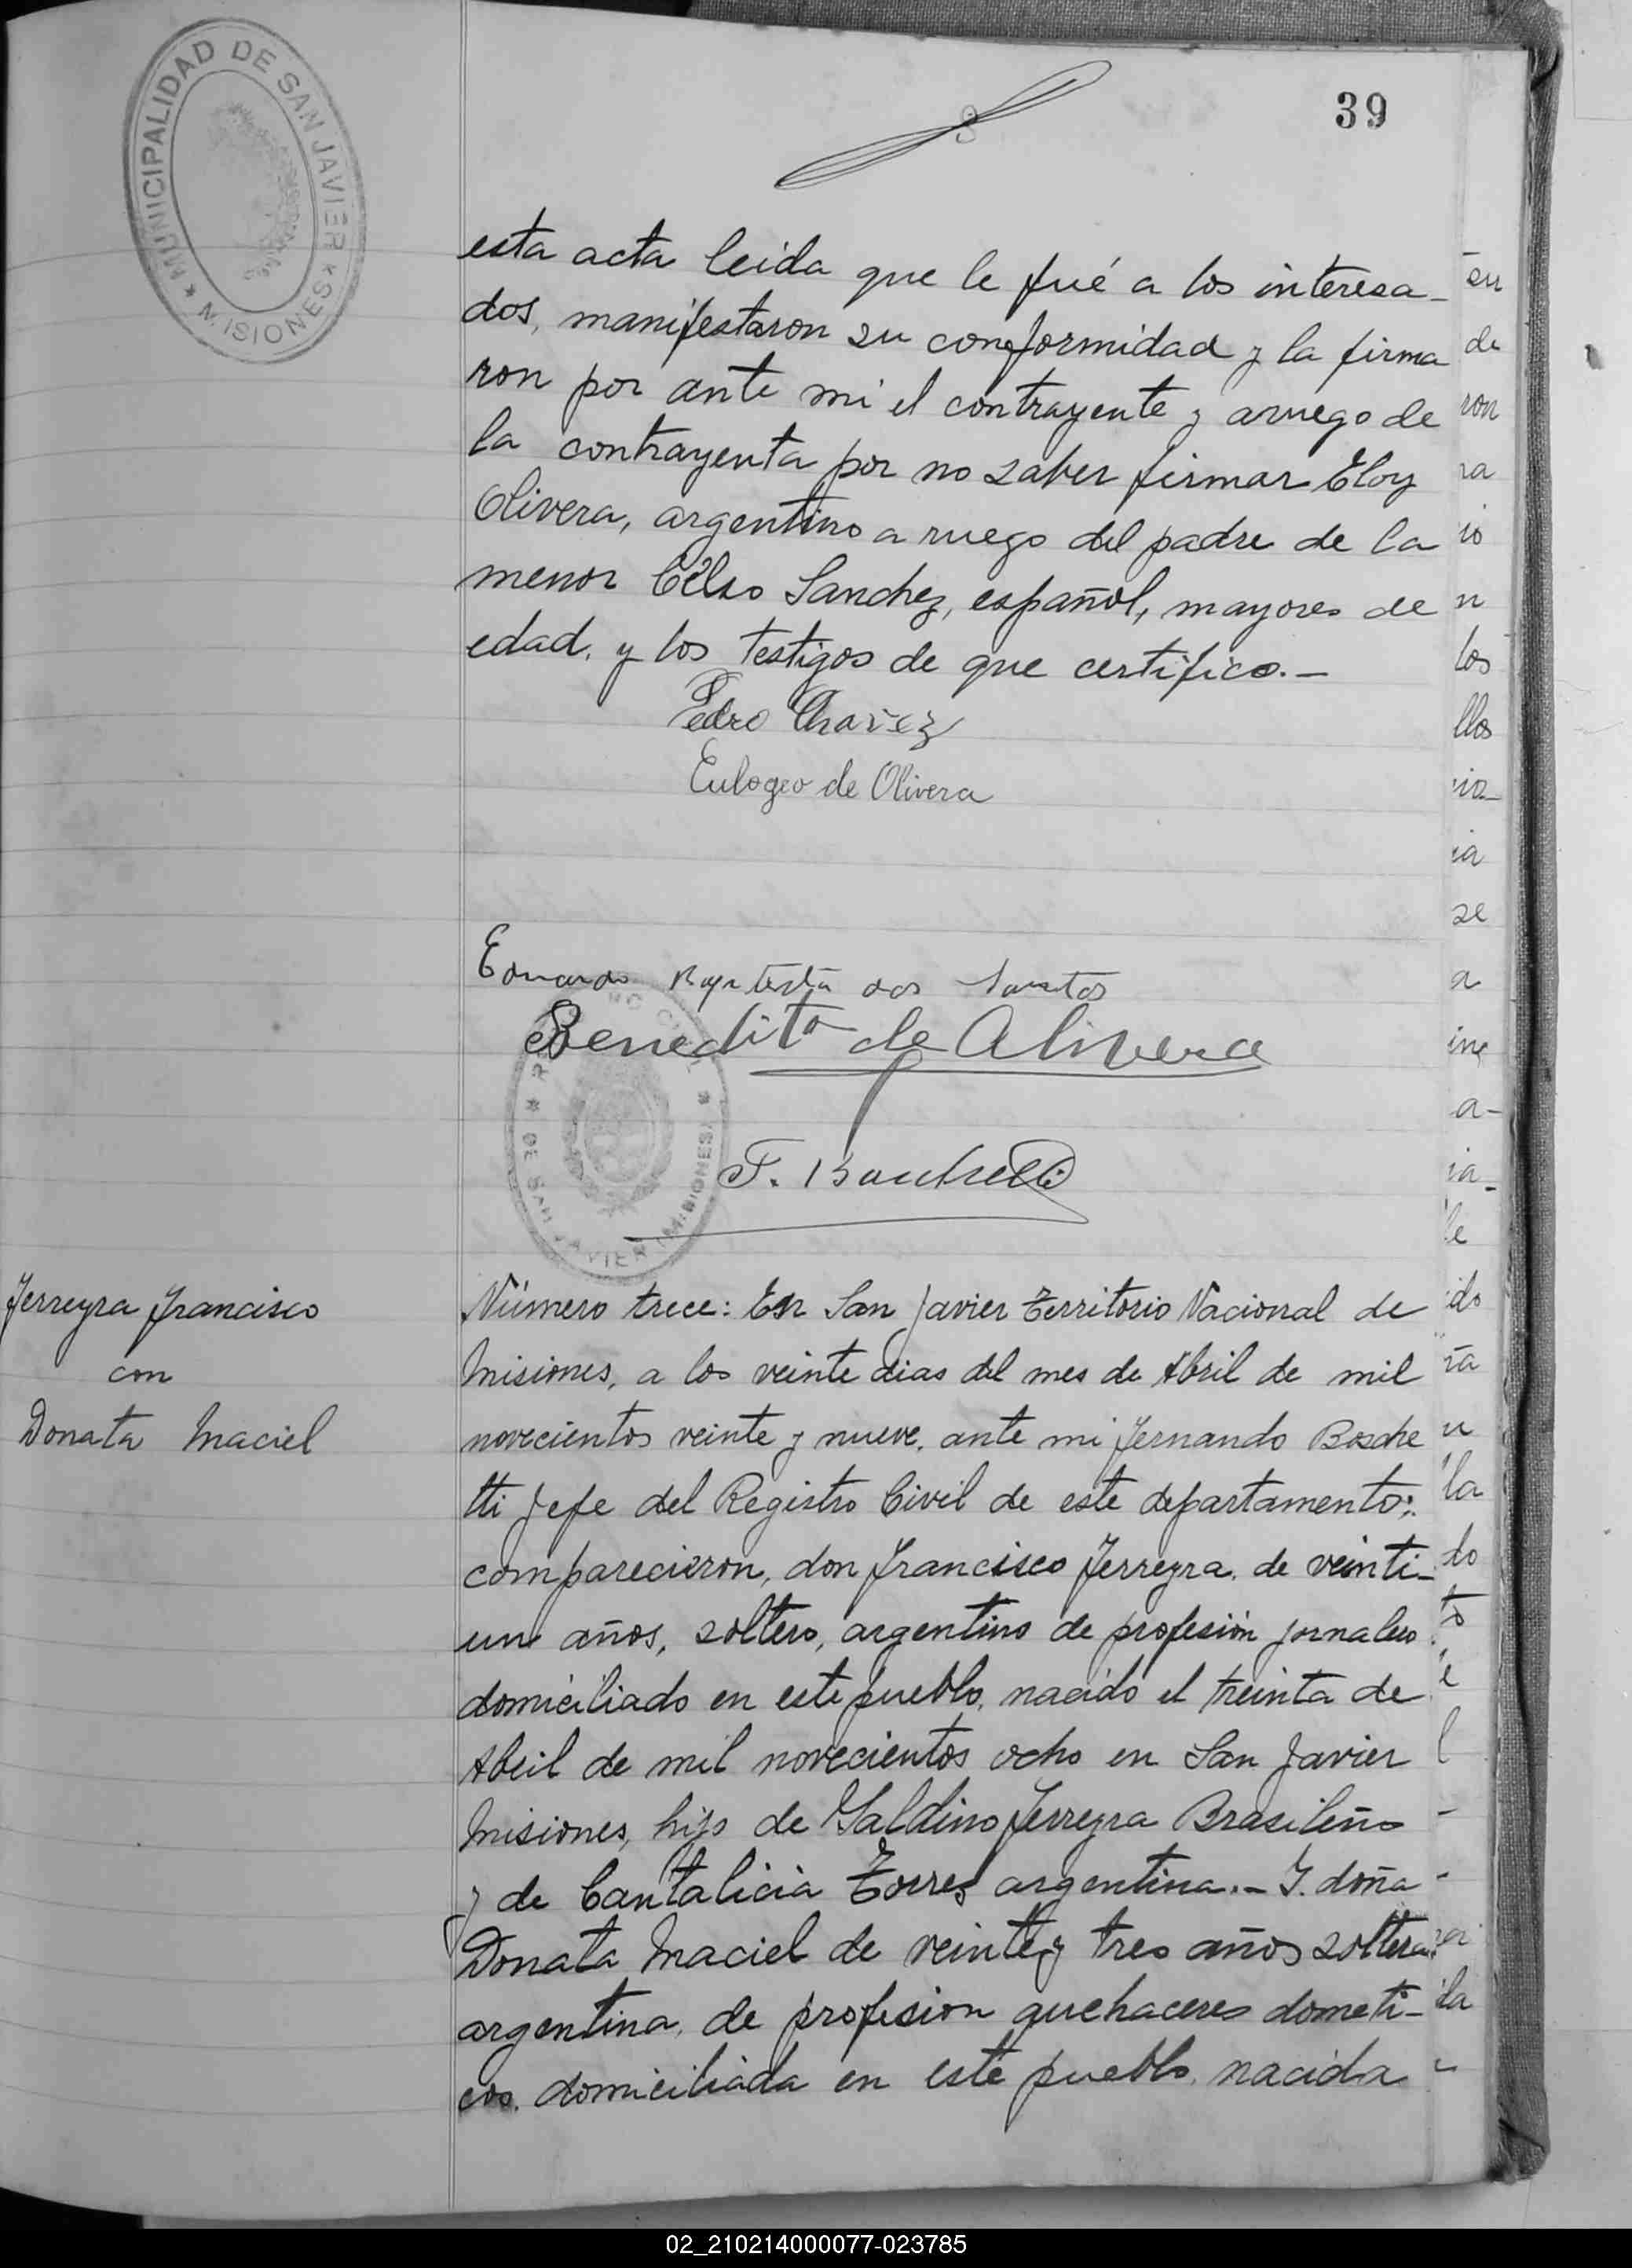 MUNICIPALIDAD DE SAN JAVIER
* MISIONES *
39
esta acta leida que le fué a los interesa-
dos, manifestaron su conformidad y la firma
ron por ante mi el contrayente y aruego de
la contrayenta por no saber firmar Eloy
Olivera, argentino a ruego del padre de la
menor Célso Sanchez, español, mayores de
edad, y los testigos de que certifico.-
Pedro Chavez
Eulogeo de Olivera
Eduardo Baptista dos Santos
Benedito de Olivera
F. Boschetti
DE SAN JAVIER (MISIONES)
Ferreyra Francisco
con
Donata Maciel
Número trece: En San Javier Territorio Nacional de
Misiones, a los veinte dias del mes de Abril de mil
novecientos veinte y nueve, ante mi Fernando Bosche
tti Jefe del Registro Civil de este departamento:
comparecieron, don Francisco Ferreyra, de veinti-
un años, soltero, argentino de profesión jornalero
domiciliado en este pueblo, nacido el treinta de
Abril de mil novecientos ocho en San Javier
Misiones, hijo de Galdino Ferreyra Brasileño
y de Cantalicia Torres argentina.- Y. doña
Donata Maciel de veinte y tres años soltera
argentina, de profesion quehaceres dometi-
cos, domiciliada en este pueblo, nacida
02_210214000077-023785